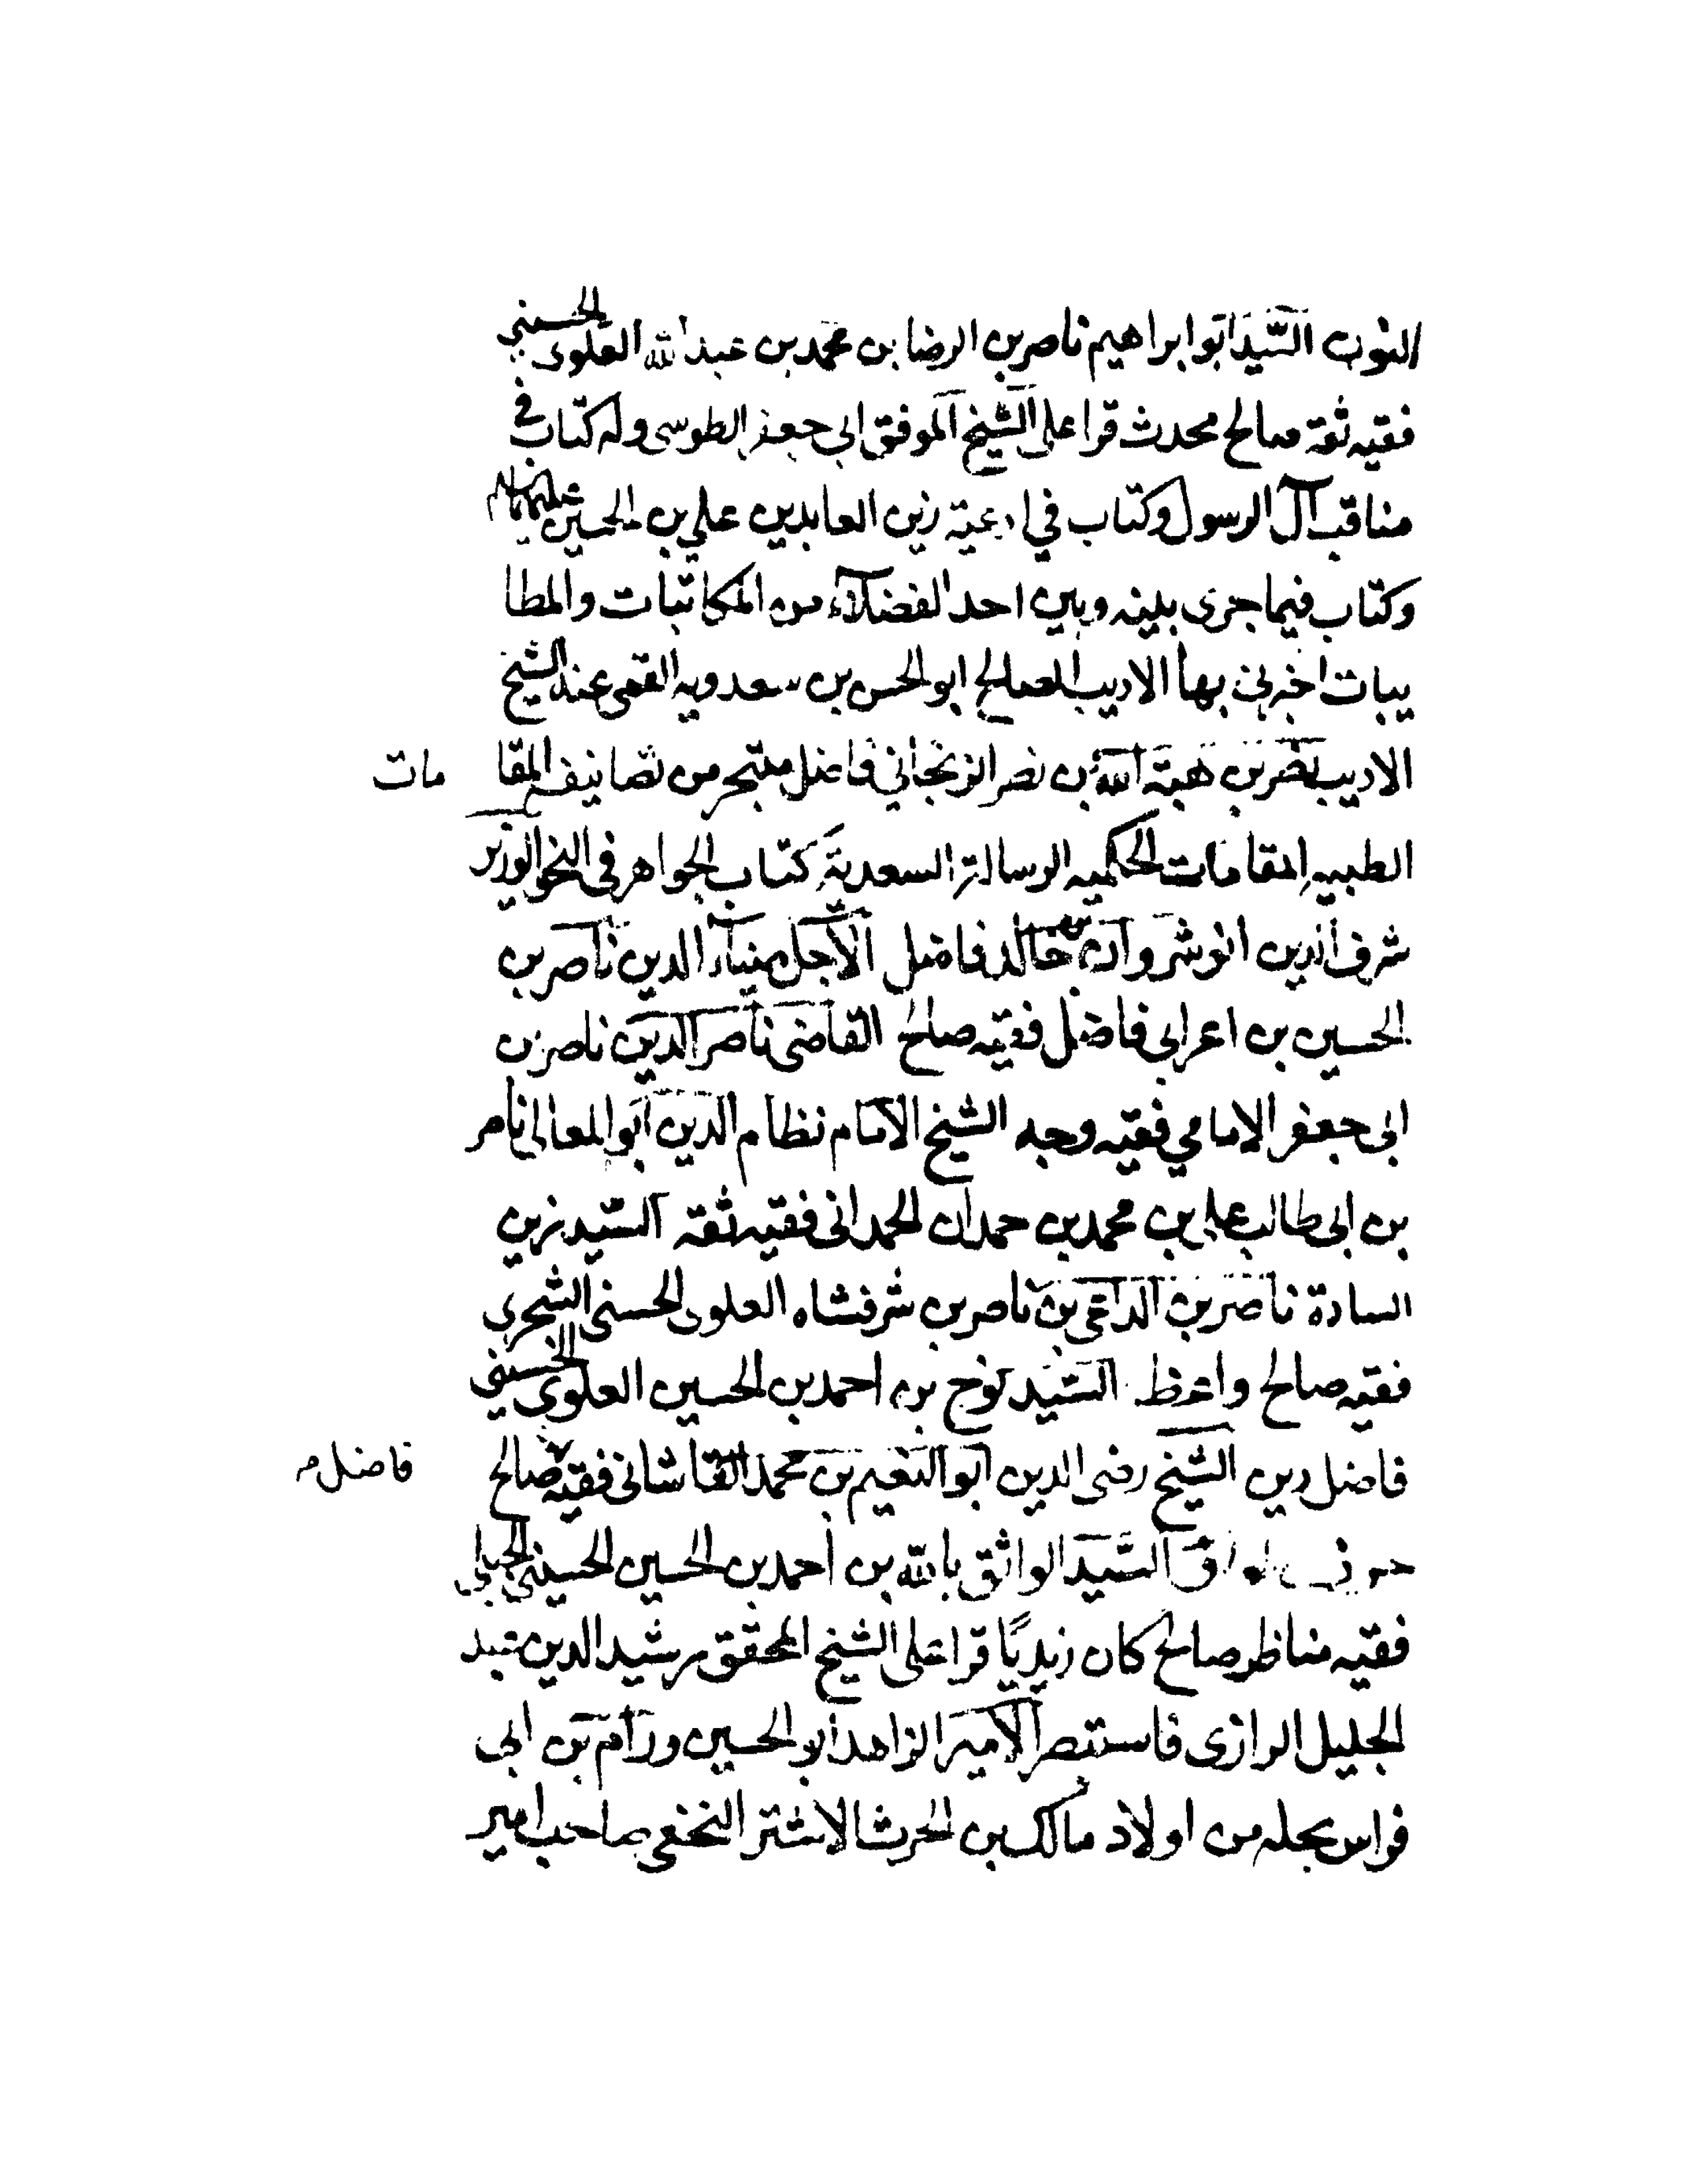 النون السيد ابو ابراهيم ناصر بن الرضا بن محمد بن عبد الله العلوى الحسيني
فقيه ثقة صالح محدث قرا على الشيخ الموفق ابي جعفر الطوسى وله كتاب في
مناقب آل الرسول وكتاب في ادعية زين العابدين علي بن الحسين عليهما السلام
وكتاب فيما جرى بينه وبين احد الفضلآء من المكاتبات والمطا
يبات اخبرني بها الاديب الصالح ابو الحسن بن سعدويه القمى عند الشيخ
الاديب نصر بن هبة الله بن نصر الزنجاني فاضل متبحر من تصانيفه المقا مات
الطبيه المقامات الحكميه الرسالة السعدية كتاب الجواهر فى النحو الوزير
شرف الدين انوشروان بن خالد فاضل الاجل ضياء الدين ناصر بن
الحسين بن اعرابى فاضل فقيه صالح القاضى ناصر الدين ناصر بن
ابى جعفر الامامي فقيه وجه الشيخ الامام نظام الدين ابو المعالى ناصر
بن ابى طالب على بن محمد بن حمدان الحمدانى فقيه ثقه السيد زين
السادة ناصر بن الداعى بن ناصر بن شرفشاه العلوى الحسنى الشجرى
فقيه صالح واعظ السيد نوح بن احمد بن الحسين العلوى الحسيني
فاضل دين الشيخ رضى الدين ابو النعيم بن محمد القاشانى فقيه صالح
فاضل م
السيد الواثق بالله بن احمد بن الحسين الحسيني الجيلي
فقيه مناظر صالح كان زيديًا قرا على الشيخ المحقق رشيد الدين عبد
الجليل الرازى فاستبصر الامير الزاهد ابو الحسين ورام بن ابى
فراس بحله من اولاد مالك بن الحرث الاشتر النخعى صاحب امير